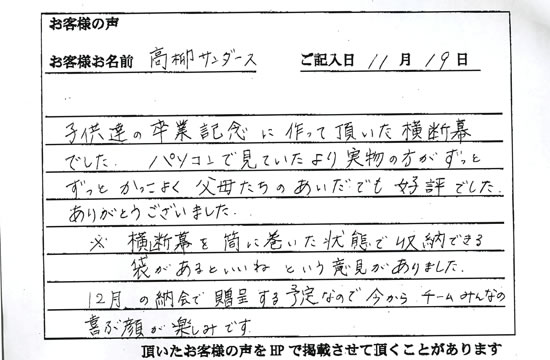 お客様の声
お客様お名前 高柳サンダース ご記入日 11 月 19 日
子供達の卒業記念に作って頂いた横断幕
でした. パソコンで見ていたより実物の方がずっと
ずっとかっこよく父母たちのあいだでも好評でした.
ありがとうございました.
※ 横断幕を筒に巻いた状態で収納できる
袋があるといいね という意見がありました.
12月の納会で贈呈する予定なので今からチームみんなの
喜ぶ顔が楽しみです
頂いたお客様の声をHPで掲載させて頂くことがあります